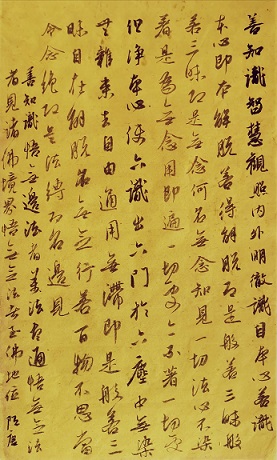 善知識智慧觀照内外明徹識自本心若識
本心即本解脱若得解脱即是般若三昧般
若三昧即是無念何名無念知見一切法心不染
著是為無念用即遍一切處亦不著一切處
但净本心使六識出六門於六塵中無染
無雜来去自由通用無滯即是般若三
昧自在解脱名無念行若百物不思當
令念絶即是法縛即名邊見
善知識悟無念法者萬法盡通悟無念法
者見諸佛境界悟無念法者至佛地位